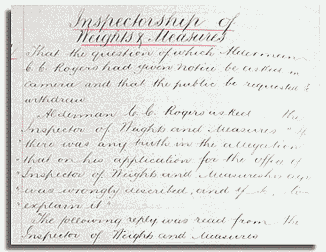 Inspectorship of
Weights & Measures
That the question of which Alderman
C. C. Rogers had given notice be asked in
camera and that the public be requested to
withdraw
Alderman C. C. Rogers asked the
Inspector of Weights and Measures "If
there was any truth in the allegation
that on his application for the office of
Inspector of Weights and Measures his age
was wrongly described, and if so, to
explain it"
The following reply was read from the
Inspector of Weights and Measures